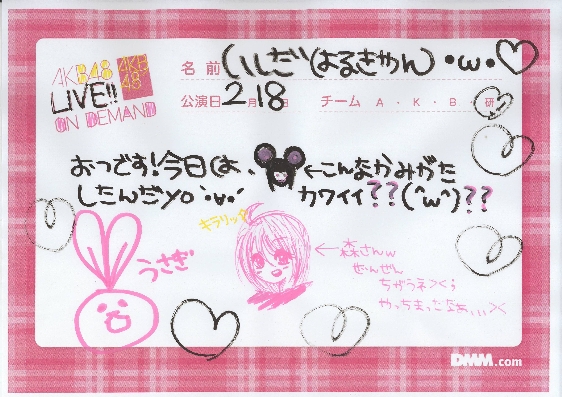 AKB48
LIVE!!
ON DEMAND
AKB
48
名前 いしだはるきゃん・ω・♡
公演日 2月18日 チーム A・K・B・研
おつです!今日は、←こんなかみがた
したんだyo
カワイイ??(^ω^)??
キラリッ
うさぎ
←森さんw
ぜんぜん
ちがうネ><;
やっちまったなぁ、、、><
DMM.com